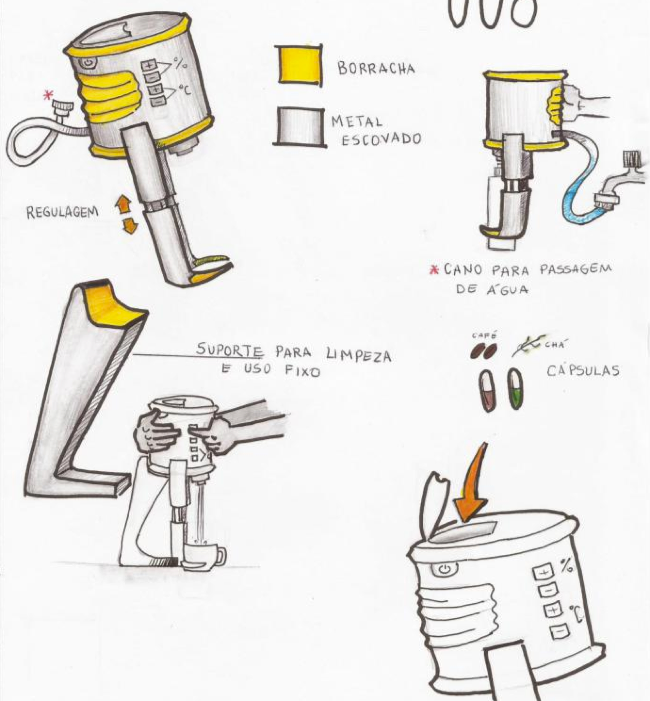 BORRACHA
METAL
ESCOVADO
+
-
+
-
%
°C
*
REGULAGEM
* CANO PARA PASSAGEM
DE ÁGUA
SUPORTE PARA LIMPEZA
E USO FIXO
CAFÉ
CHÁ
CÁPSULAS
+
-
+
-
%
°C